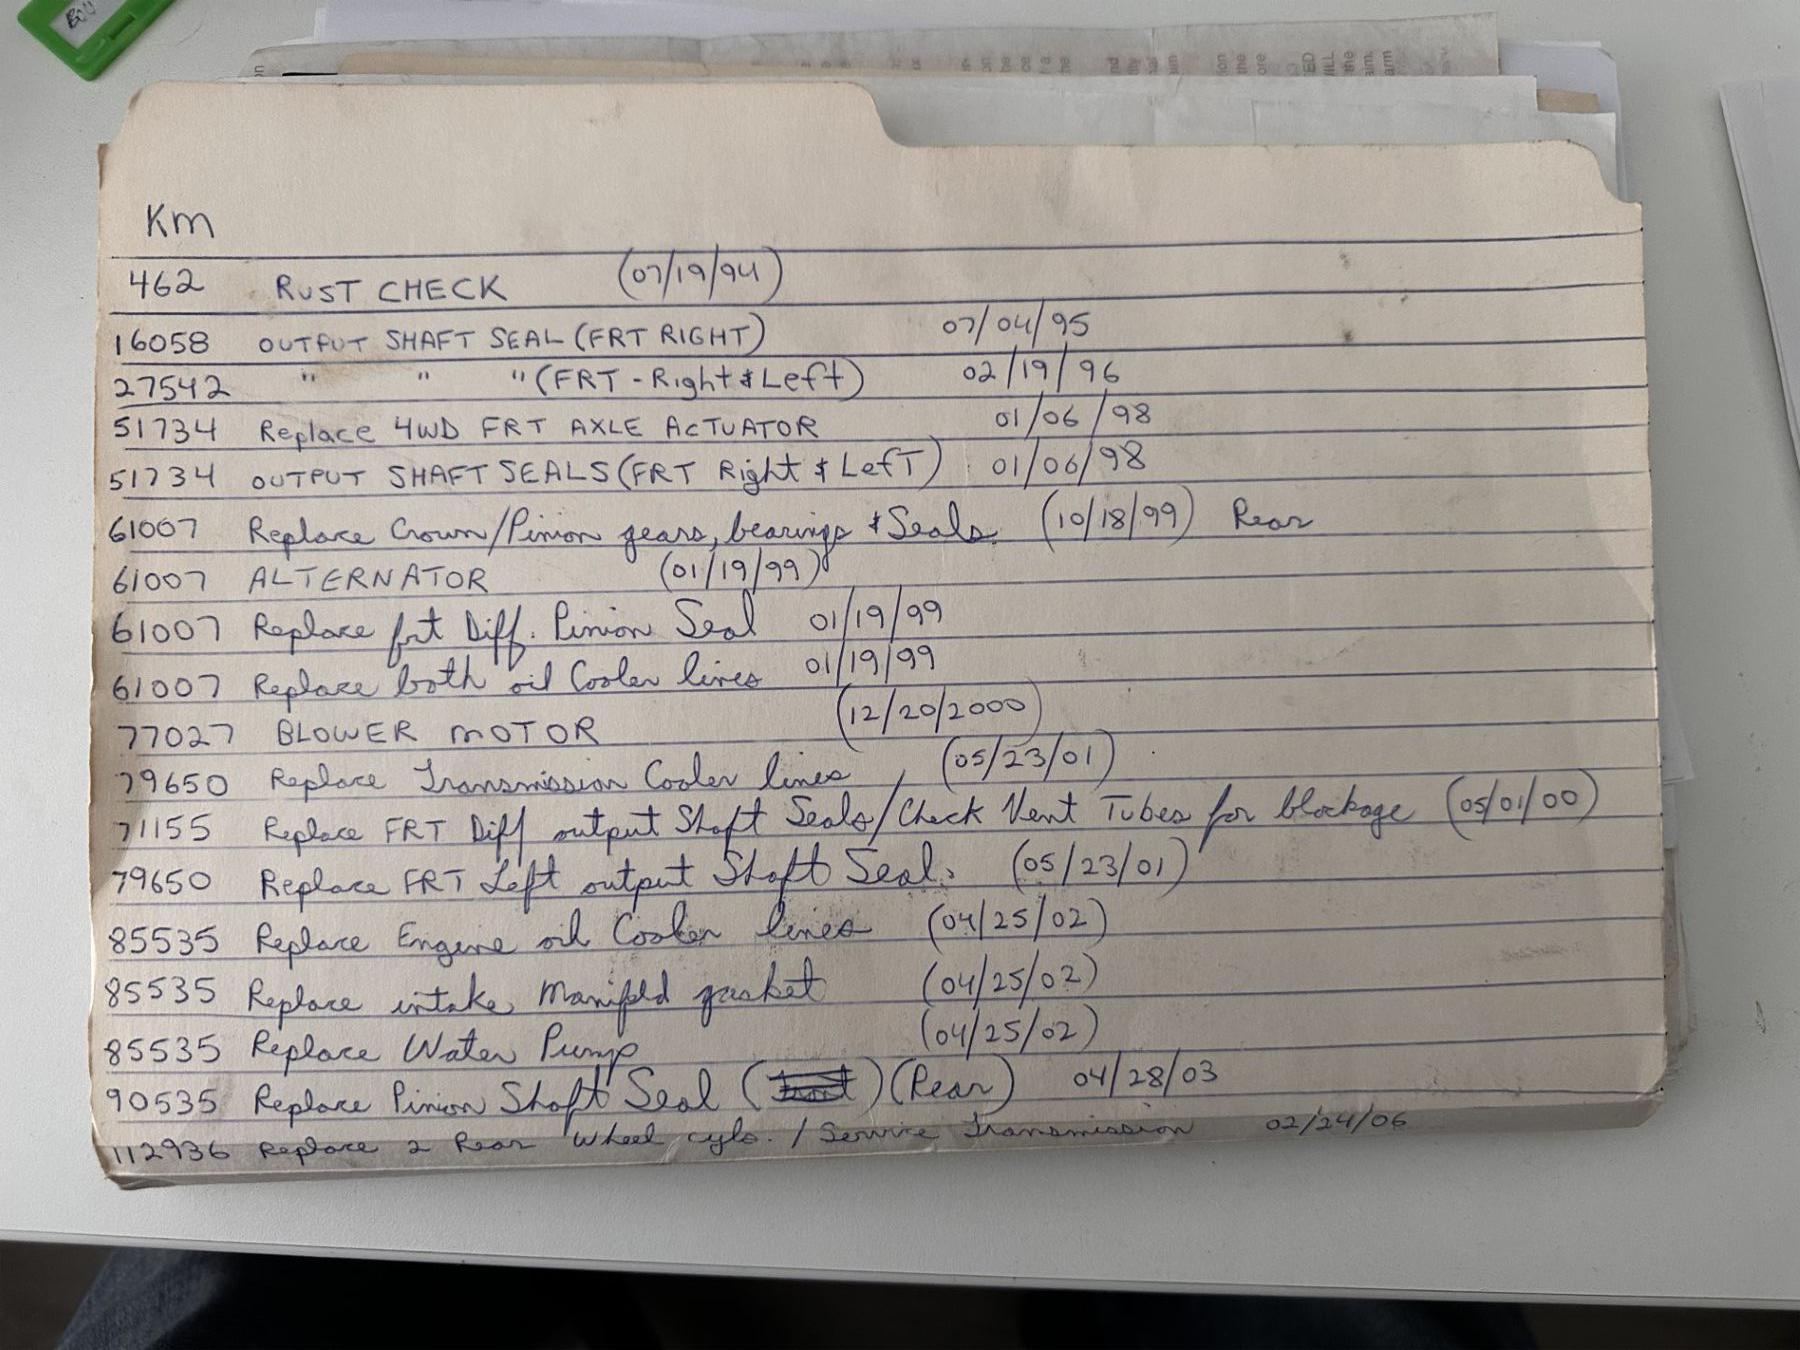 Km
462 RUST CHECK (07/19/94)
16058 OUTPUT SHAFT SEAL (FRT RIGHT) 07/04/95
27542 " " " (FRT - Right & Left) 02/19/96
51734 Replace 4WD FRT AXLE ACTUATOR 01/06/98
51734 OUTPUT SHAFT SEALS (FRT Right & LefT) 01/06/98
61007 Replace Crown/Pinion gears, bearings & Seals. (10/18/99) Rear
61007 ALTERNATOR (01/19/99)
61007 Replace frt Diff. Pinion Seal 01/19/99
61007 Replace both oil Cooler lines 01/19/99
77027 BLOWER MOTOR (12/20/2000)
79650 Replace Transmission Cooler lines (05/23/01)
71155 Replace FRT Diff output Shaft Seals/Check Vent Tubes for blockage (05/01/00)
79650 Replace FRT Left output Shaft Seal. (05/23/01)
85535 Replace Engine oil Cooler lines (04/25/02)
85535 Replace intake Manifold gasket (04/25/02)
85535 Replace Water Pump (04/25/02)
90535 Replace Pinion Shaft Seal (Rear) 04/28/03
112936 Replace 2 Rear Wheel cyls. / Service Transmission 02/24/06